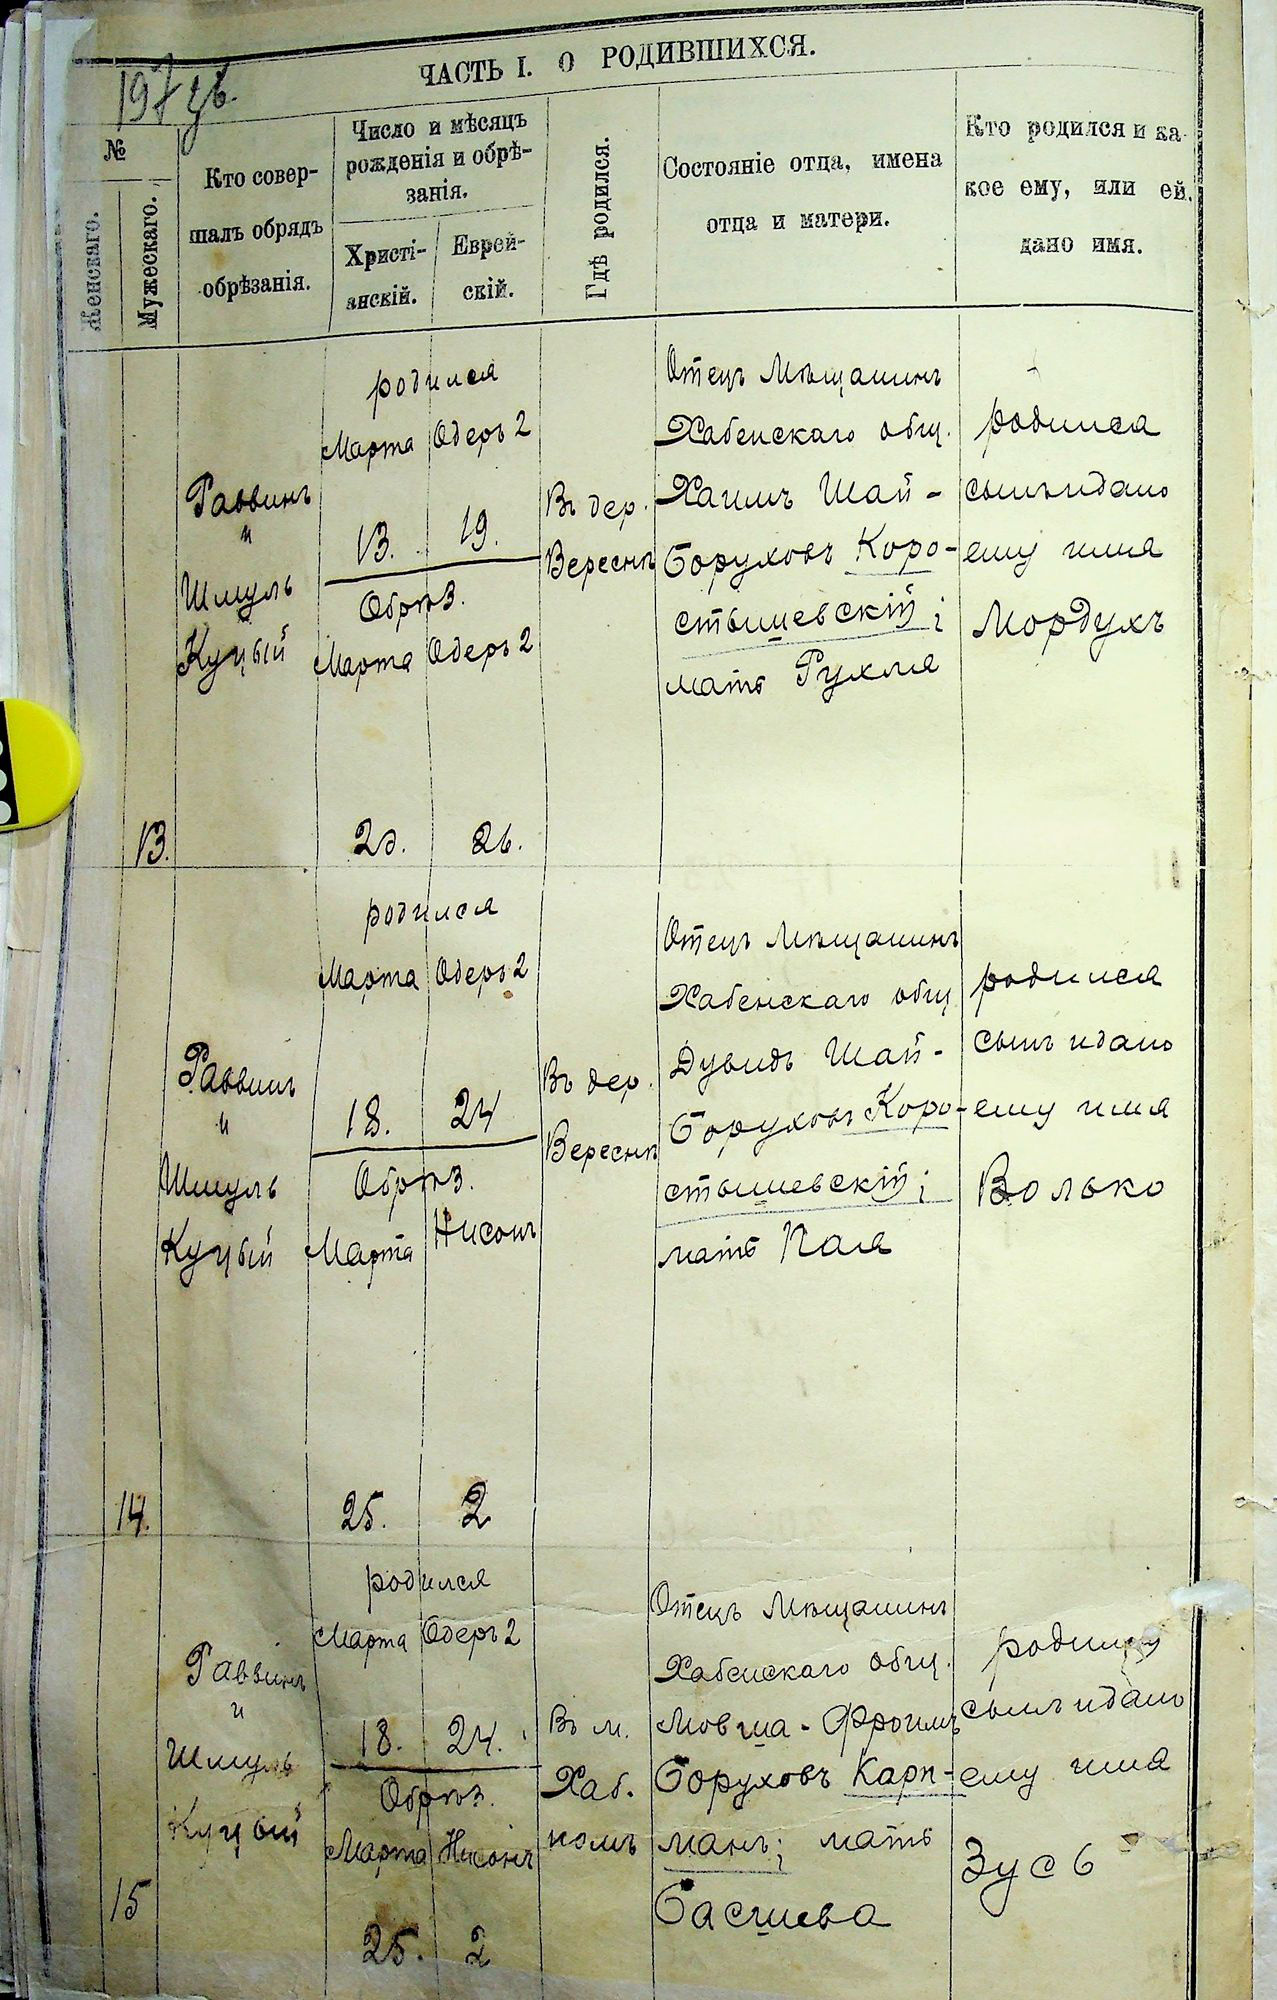 ЧАСТЬ I. О РОДИВШИХСЯ.
197
№
Женскаго.
Мужескаго.
Кто совер-
шалъ обрядъ
обрѣзанія.
Число и мѣсяцъ
рожденія и обрѣ-
занія.
Христі-
анскій.
Еврей-
скій.
Гдѣ родился.
Состояніе отца, имена
отца и матери.
Кто родился и ка-
кое ему, или ей,
дано имя.
13.
Раввинъ
и
Шмуль
Куцый
родился
Марта Одеръ 2
13. 19.
Обрѣз.
Марта Одеръ 2
20. 26.
Въ дер.
Вереснѣ
Отецъ Мѣщанинъ
Хабенскаго общ.
Хаимъ Шай-
Боруховъ Коро-
стышевскій;
мать Рухля
родился
сынъ и дано
ему имя
Мордухъ
14.
Раввинъ
и
Шмуль
Куцый
родился
Марта Одеръ 2
18. 24
Обрѣз.
Марта Нисонъ
25. 2
Въ дер.
Вереснѣ
Отецъ Мѣщанинъ
Хабенскаго общ
Дувидъ Шай-
Боруховъ Коро-
стышевскій;
мать Пая
родился
сынъ и дано
ему имя
Волько
15
Раввинъ
и
Шмуль
Куцый
родился
Марта Одеръ 2
18. 24.
Обрѣз.
Марта Нисонъ
25. 2
Въ м.
Хаб.
номъ
Отецъ Мѣщанинъ
Хабенскаго общ.
Мовша-Фроимъ
Боруховъ Карп-
манъ; мать
Басшева
родился
сынъ и дано
ему имя
Зусь